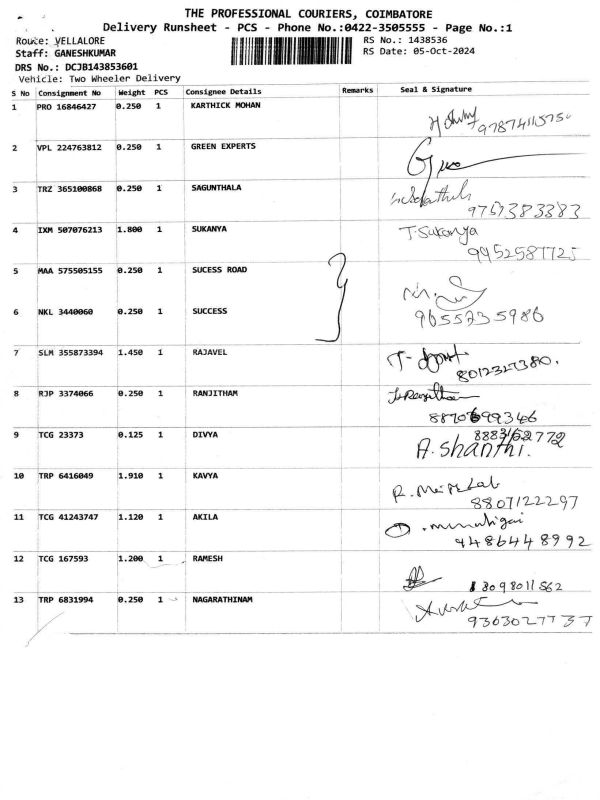 THE PROFESSIONAL COURIERS, COIMBATORE
Delivery Runsheet - PCS - Phone No.:0422-3505555 - Page No.:1
Route: VELLALORE RS No.: 1438536
Staff: GANESHKUMAR RS Date: 05-Oct-2024
DRS No.: DCJB143853601
Vehicle: Two Wheeler Delivery
S No Consignment No Weight PCS Consignee Details Remarks Seal & Signature
1 PRO 16846427 0.250 1 KARTHICK MOHAN
2 VPL 224763812 0.250 1 GREEN EXPERTS
3 TRZ 365100868 0.250 1 SAGUNTHALA
9751383383
4 IXM 507076213 1.800 1 SUKANYA T. Sukanya
9952587725
5 MAA 575505155 0.250 1 SUCESS ROAD
6 NKL 3440060 0.250 1 SUCCESS
9655735986
7 SLM 355873394 1.450 1 RAJAVEL
8012327380.
8 RJP 3374066 0.250 1 RANJITHAM
9 TCG 23373 0.125 1 DIVYA
A. Shanthi.
10 TRP 6416049 1.910 1 KAVYA
8807122297
11 TCG 41243747 1.120 1 AKILA
9486448992
12 TCG 167593 1.200 1 RAMESH
13 TRP 6831994 0.250 1 NAGARATHINAM